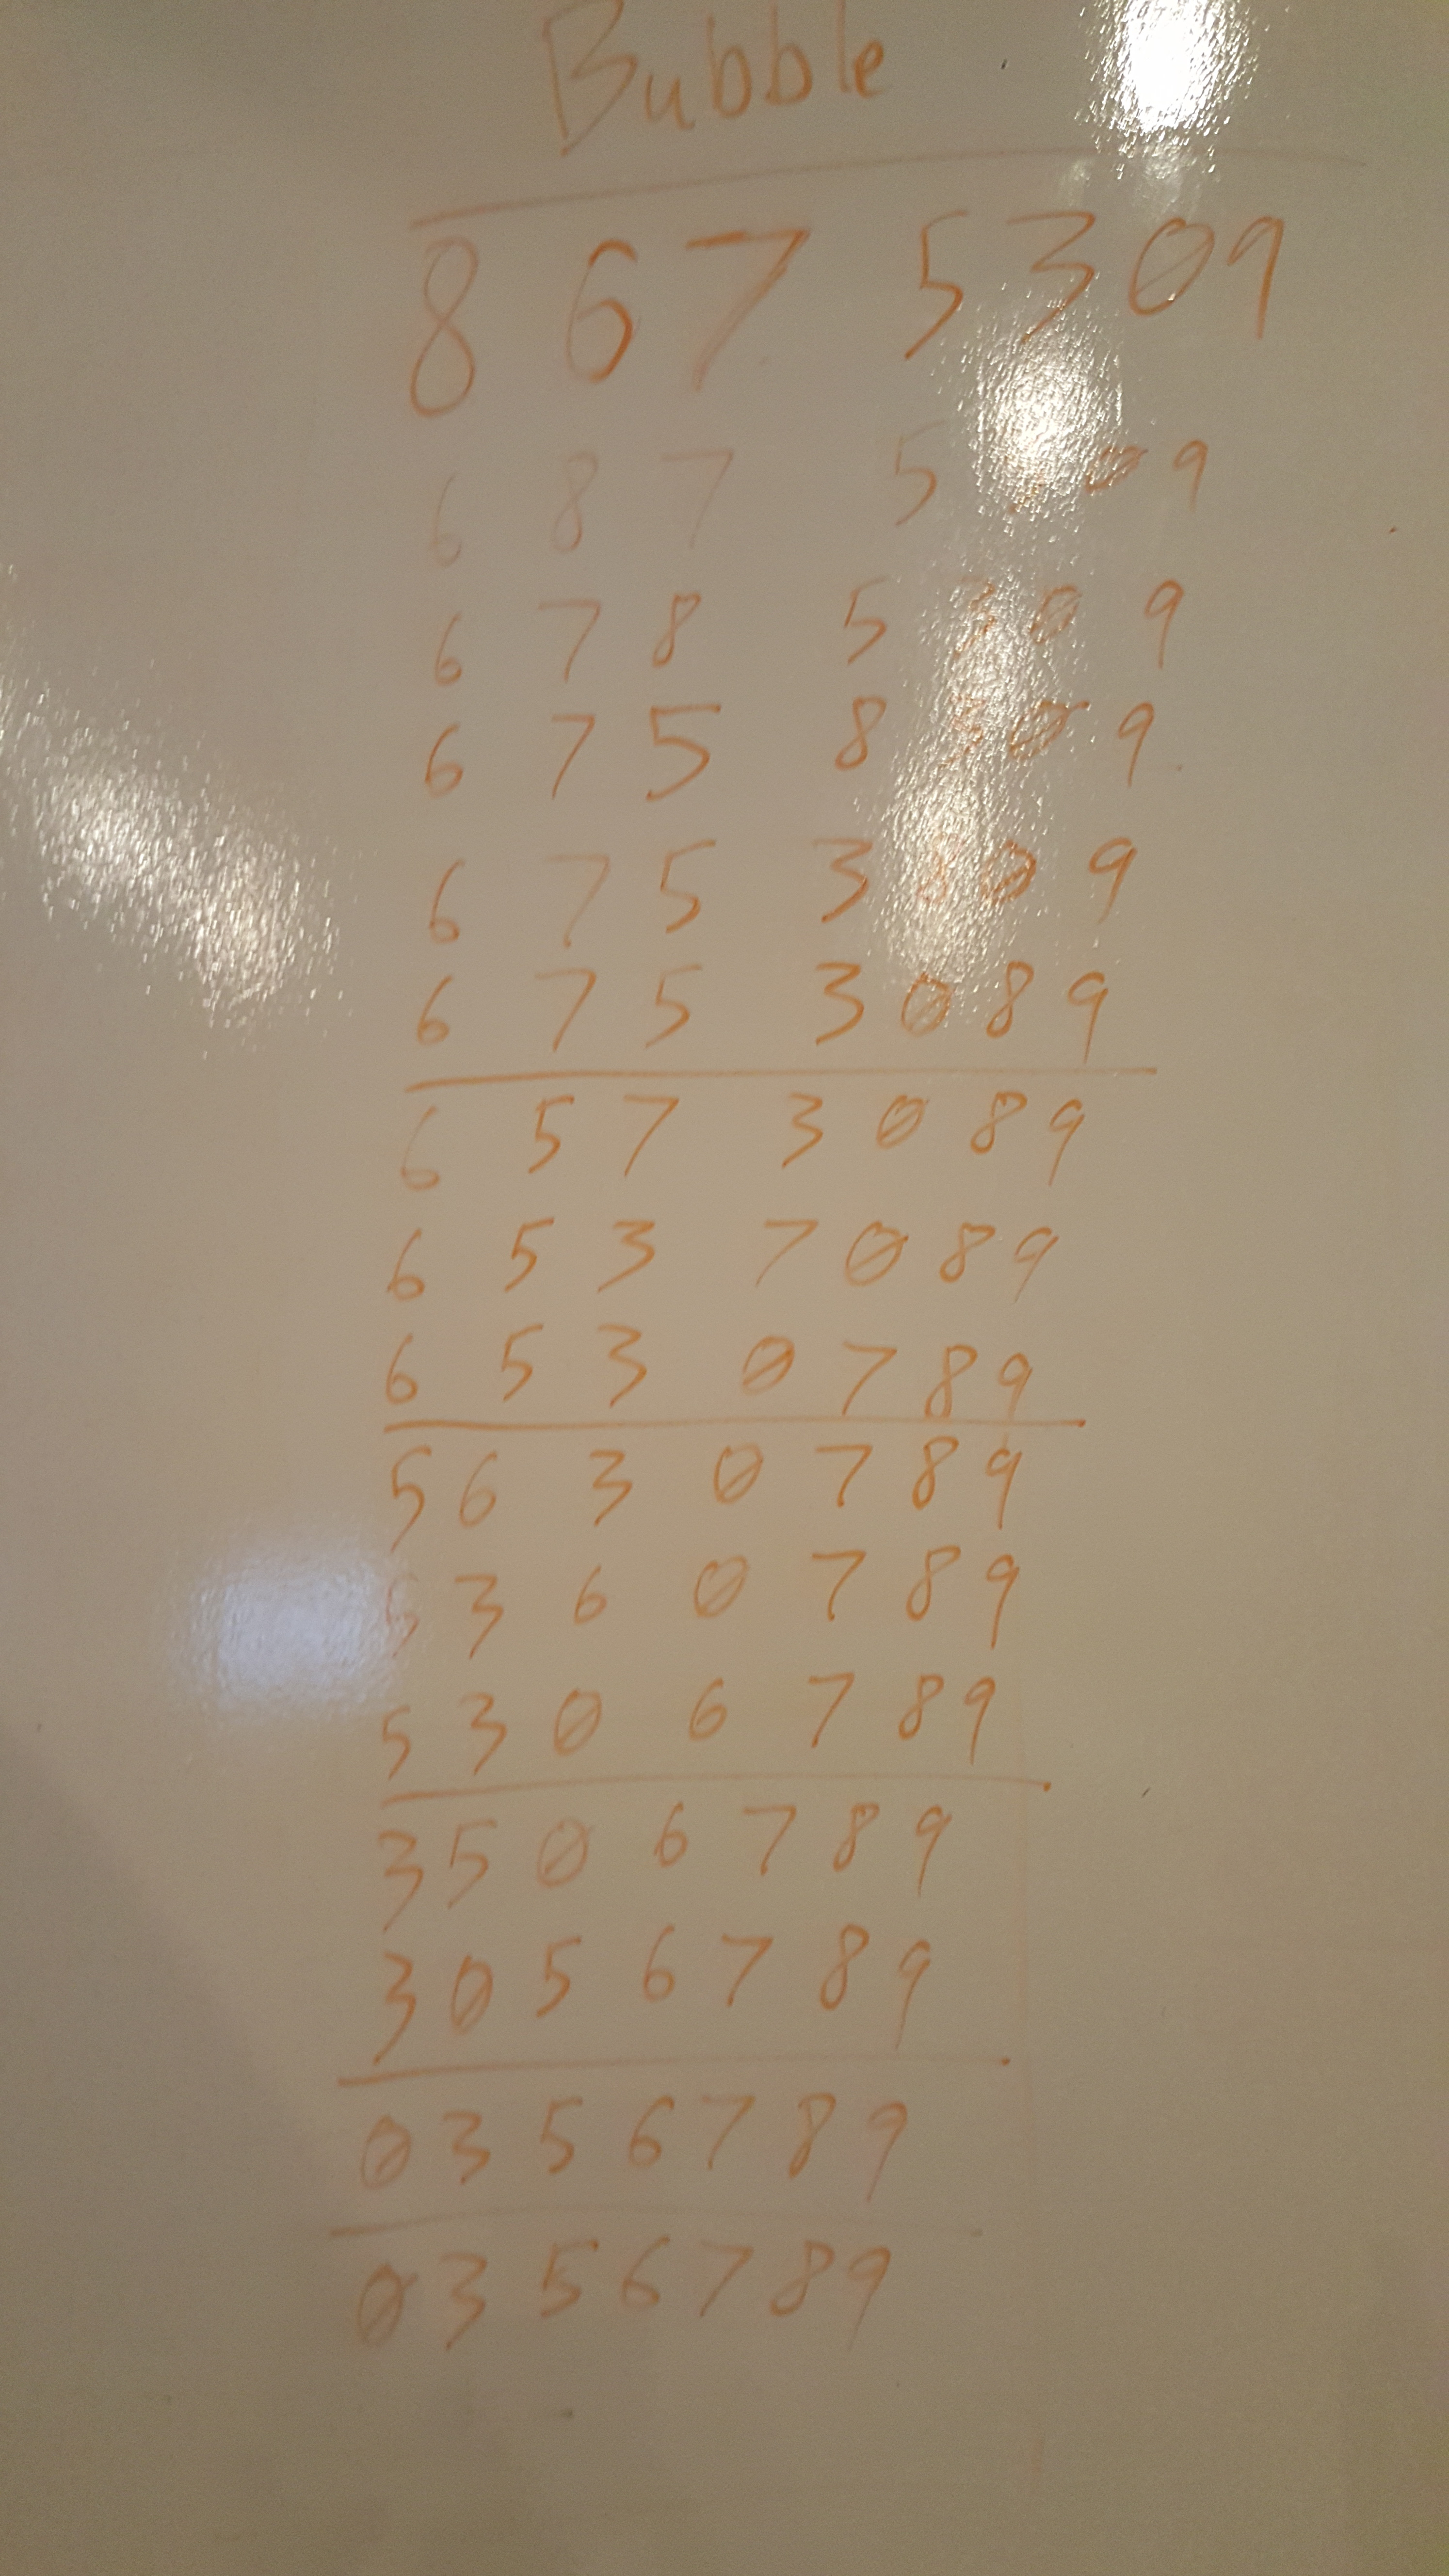 Bubble
8 6 7 5 3 0 9
6 8 7 5 0 9
6 7 8 5 3 0 9
6 7 5 8 3 0 9
6 7 5 3 8 0 9
6 7 5 3 0 8 9
6 5 7 3 0 8 9
6 5 3 7 0 8 9
6 5 3 0 7 8 9
5 6 3 0 7 8 9
5 3 6 0 7 8 9
5 3 0 6 7 8 9
3 5 0 6 7 8 9
3 0 5 6 7 8 9
0 3 5 6 7 8 9
0 3 5 6 7 8 9